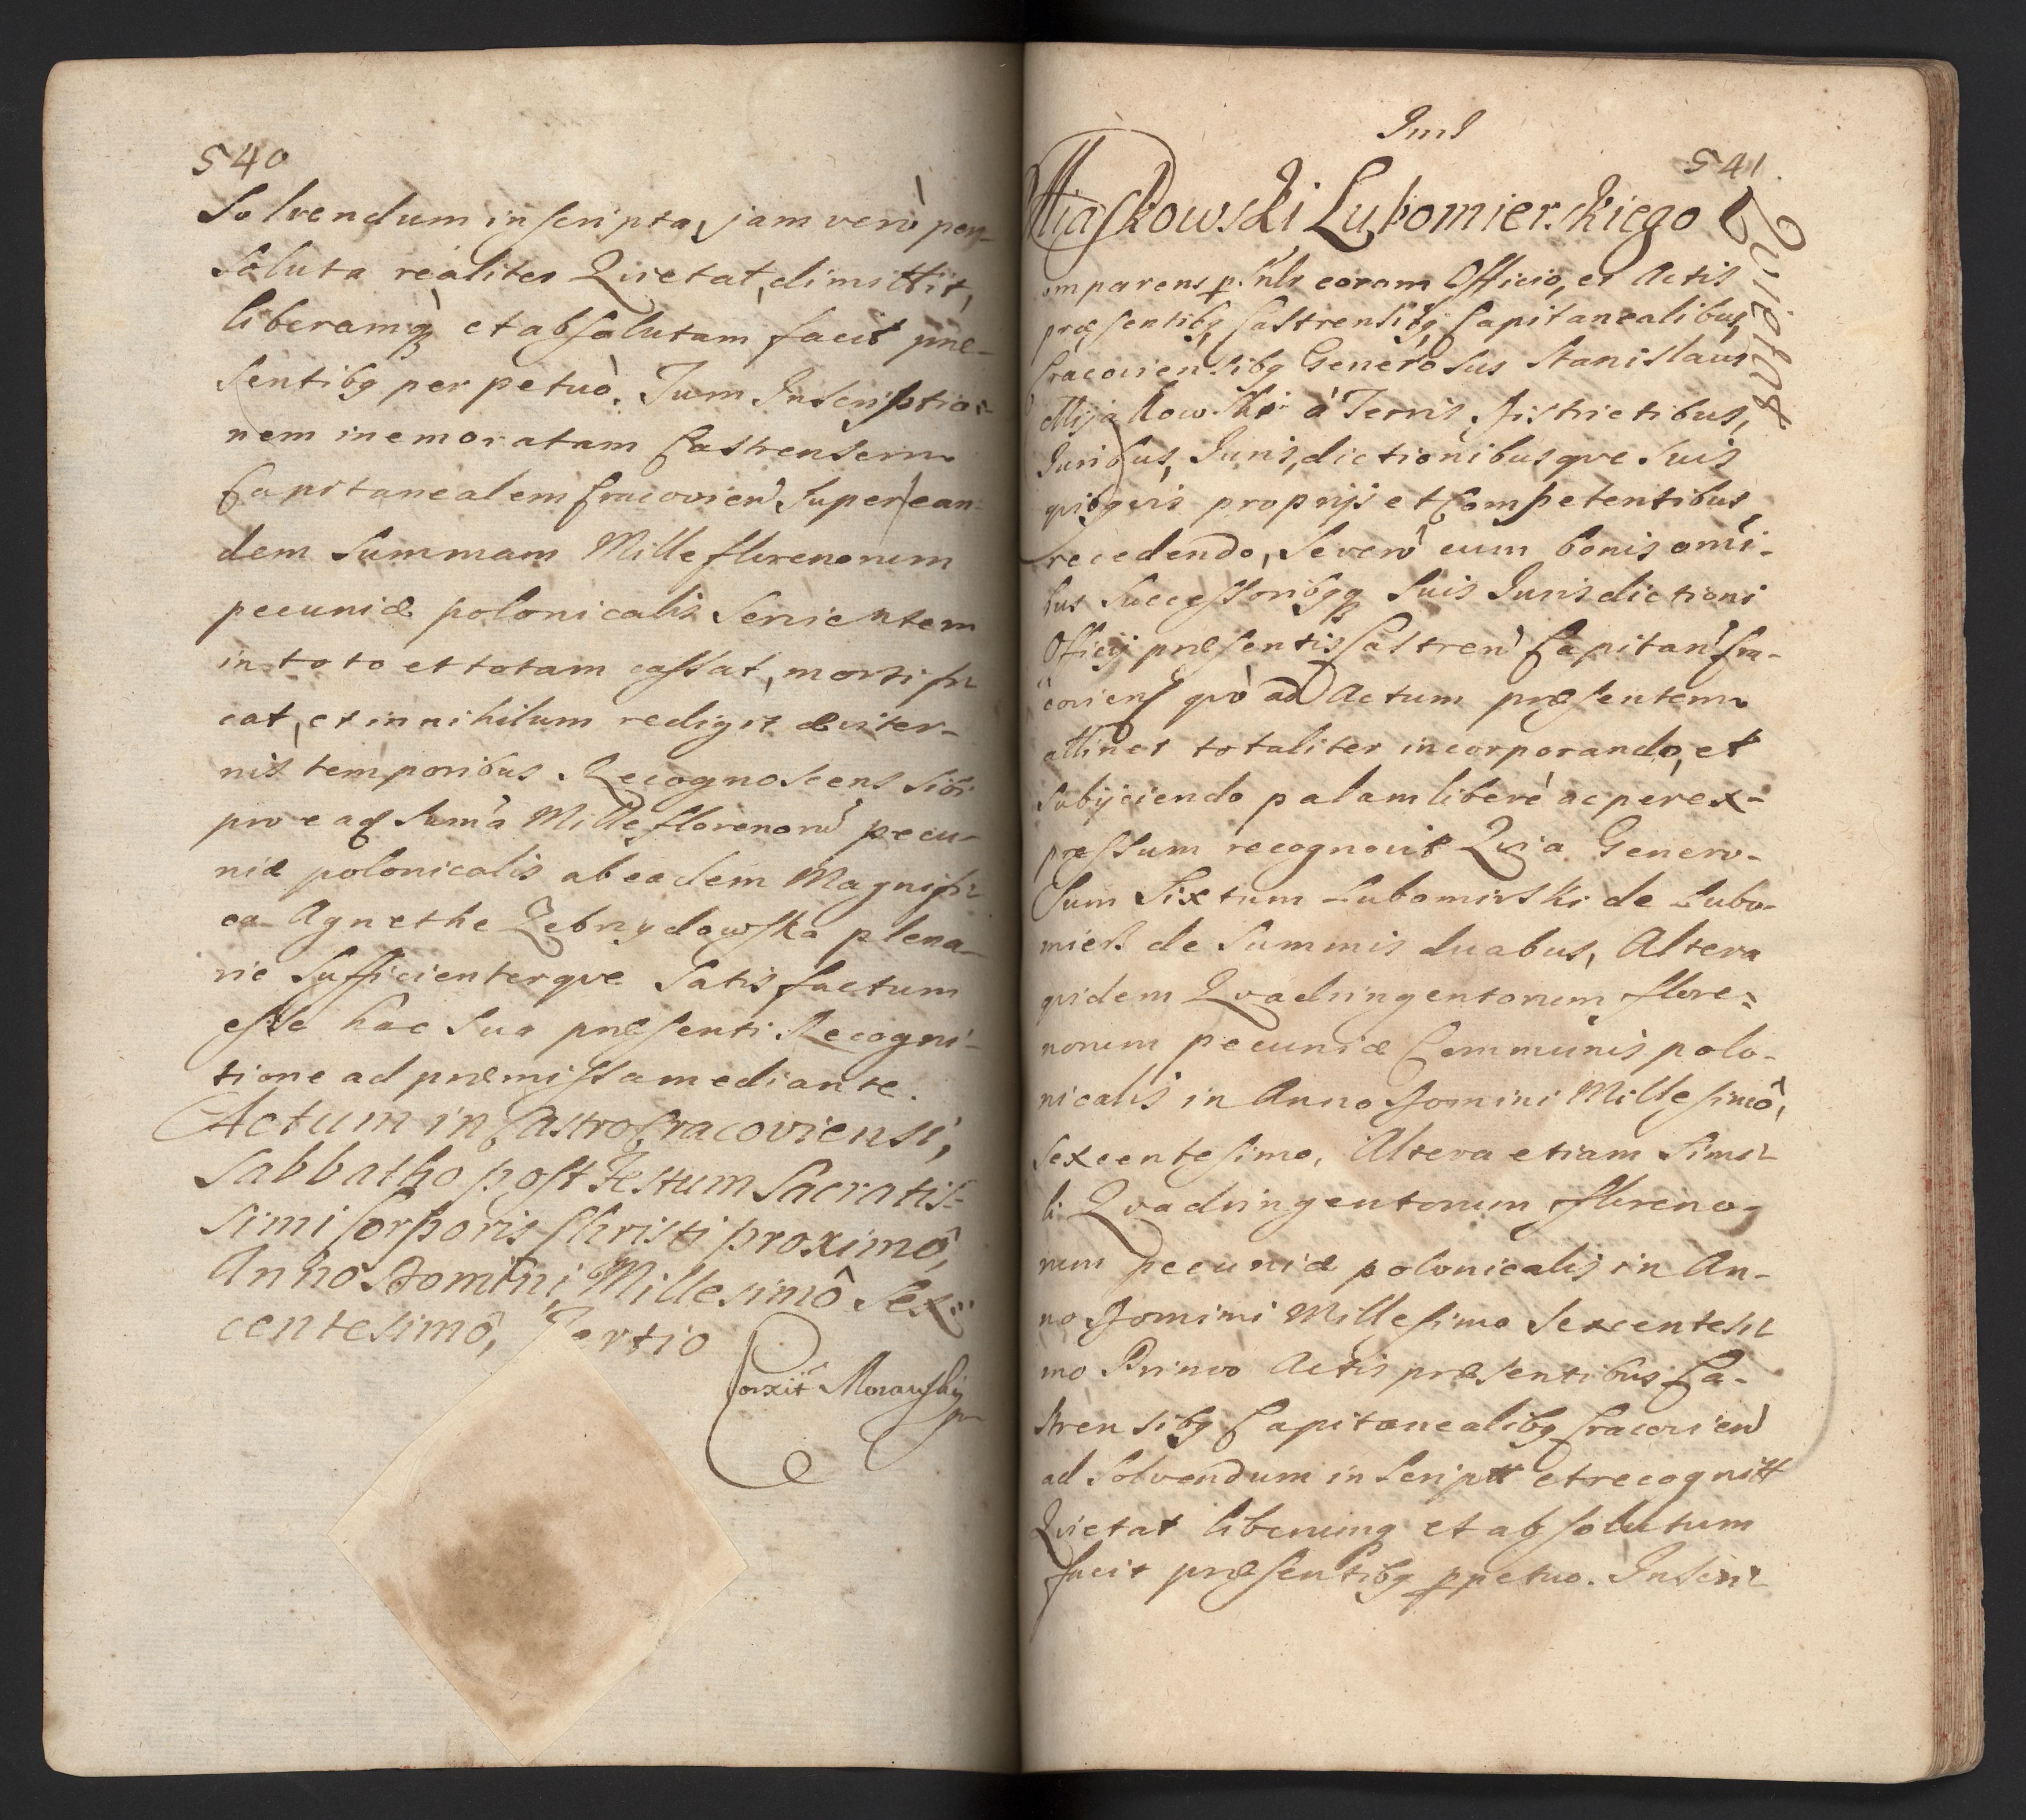 540
Solvendum inscripta, jam verò per-
soluta realiter Quietat, dimittit,
liberamq; et absolutam facit præ-
sentibq perpetuò. Tum Inscriptio-
nem memoratam Castrensem
Capitanealem Cracovien super ean-
dem summam Mille florenorum
pecuniæ polonicalis Servientem
in toto et totam cassat, mortifi-
cat, et in nihilum redigit æviter-
nis temporibus. Recognoscens sibi
pro eadq summa Mille florenorū pecu-
niæ polonicalis ab eadem Magnifi-
ca Agnethe Zebrzydowska plena-
rie sufficienterqve Satisfactum
esse hac sua præsenti Recogni-
tione ad præmissa mediante.
Actum in Castro Cracoviensi,
Sabbatho post Festum Sacratis-
simi Corporis Christi proximô,
Anno Domini Millesimô Sex-
centesimô, Tertio
Corxit Morawsky
541
Miaskowski Lubomierskiego
Quietat
omparens prnls coram Officio, et Actis
præsentibq Castrensibq Capitanealibus,
Cracoviensibq Generosus Stanislaus
Mijakowski à Terris, Districtibus,
Juribus, Jurisdictionibusqve suis
qibqvis proprijs et Competentibus
recedendo, se verò cum bonis omi-
bus Successoribqq suis Jurisdictioni
Officij præsentis Castren Capitan Cra-
coviens qvò ad Actum præsentem
attinet totaliter incorporando, et
subijciendo palam liberè ac per ex-
pressum recognovit Qvia Genero-
sum Sixtum Lubomirski de Lubo-
miers de Summis duabus, Altera
qvidem Qvadringentorum flore-
norum pecuniæ Communis polo-
nicalis in Anno Domini Millesimô,
sexcentesimo, Altera etiam Simi-
li Qvadringentorum floreno-
rum pecuniæ polonicalis in An-
no Domini Millesimo Sexcentesi-
mo Primo Actis præsentibus Ca-
strensibq Capitanealibq Cracovien
ad Solvendum inscriptt et recognitt
Qvietat liberumq et absolutum
facit præsentibq ppetuo. Inscri-